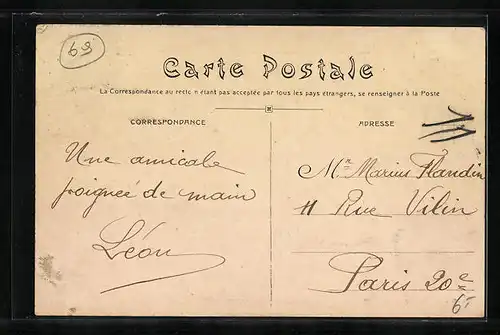 63
Carte Postale
La Correspondance au recto n'étant pas acceptée par tous les pays étrangers, se renseigner à la Poste
CORRESPONDANCE
ADRESSE
Une amicale
poignée de main
Léon
Mr Marius Flandin
11 Rue Vilin
Paris 20e
6